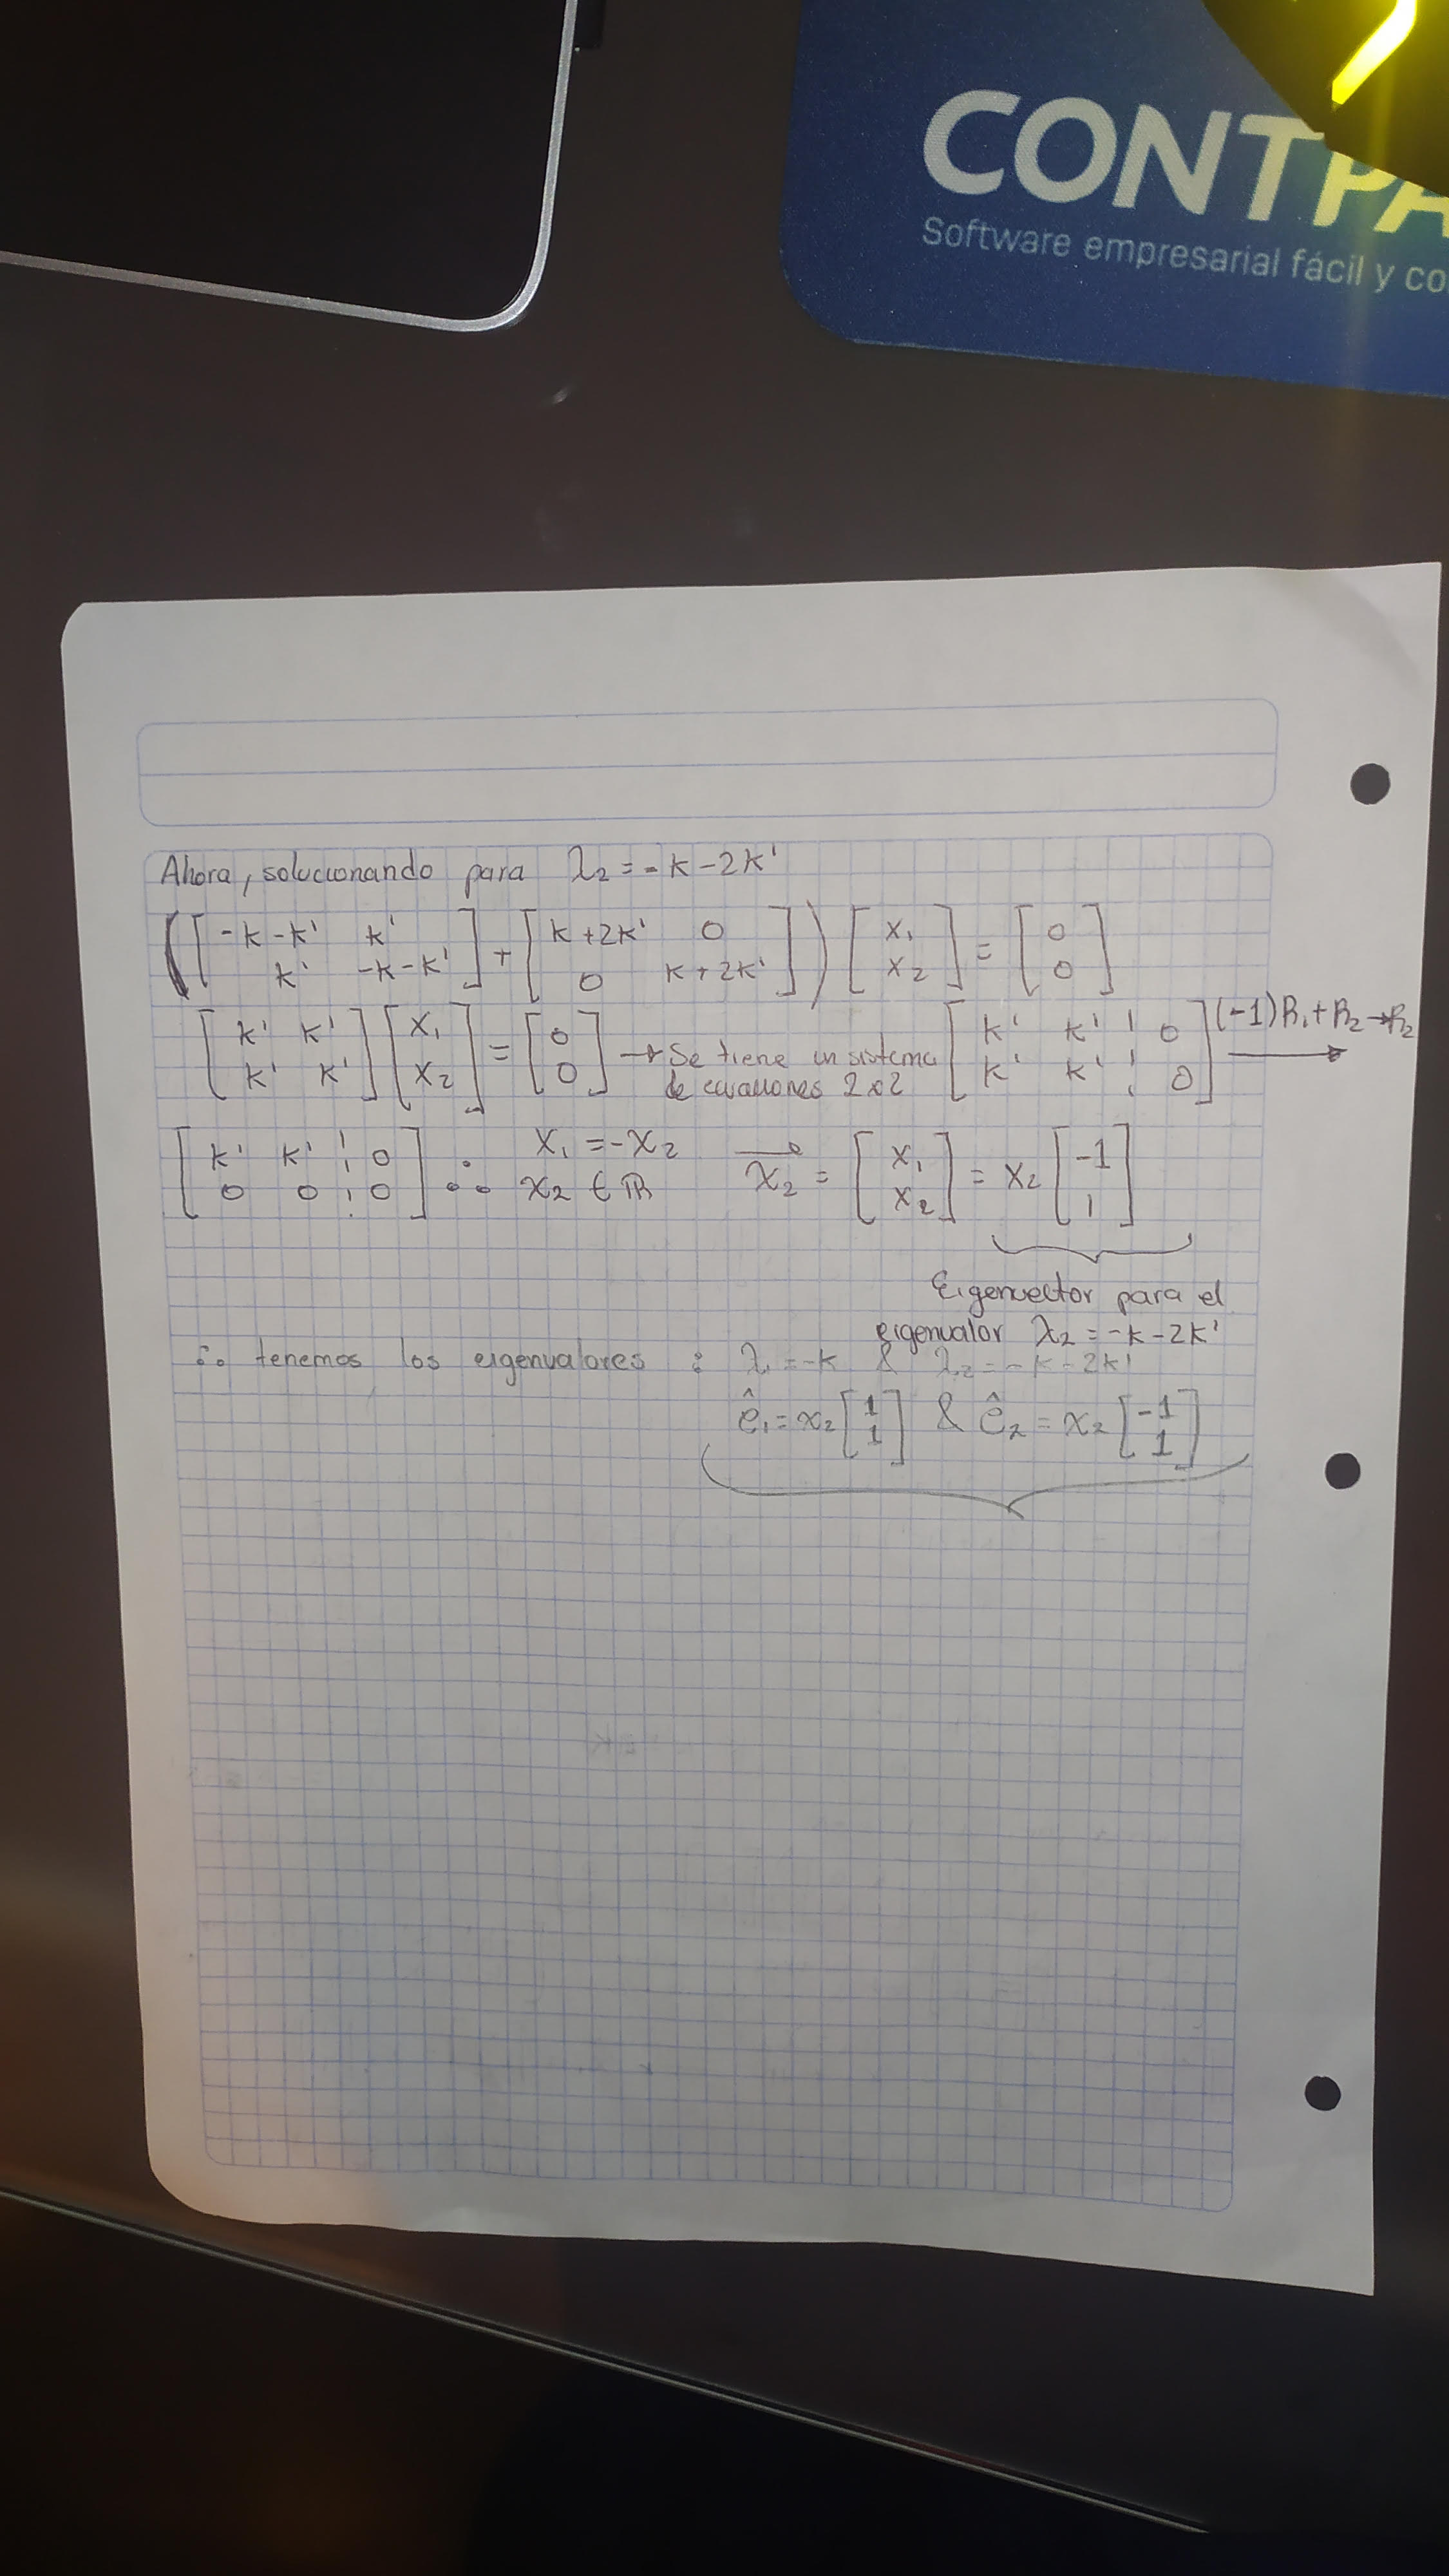 CONTPA
Software empresarial fácil y co
Ahora, solucionando para λ₂ = -k - 2k'
([-k-k' k'; k' -k-k'] + [k+2k' 0; 0 k+2k']) [x₁; x₂] = [0; 0]
[k' k'; k' k'] [x₁; x₂] = [0; 0] → Se tiene un sistema de ecuaciones 2x2 [k' k' ¦ 0; k' k' ¦ 0] (-1)R₁+R₂→R₂ →
[k' k' ¦ 0; 0 0 ¦ 0] ∴ x₁ = -x₂ x₂ ∈ ℝ x₂⃗ = [x₁; x₂] = x₂ [-1; 1]
Eigenvector para el
eigenvalor λ₂ = -k - 2k'
∴ tenemos los eigenvalores : λ₁ = -k & λ₂ = -k - 2k'
ê₁ = x₂ [1; 1] & ê₂ = x₂ [-1; 1]